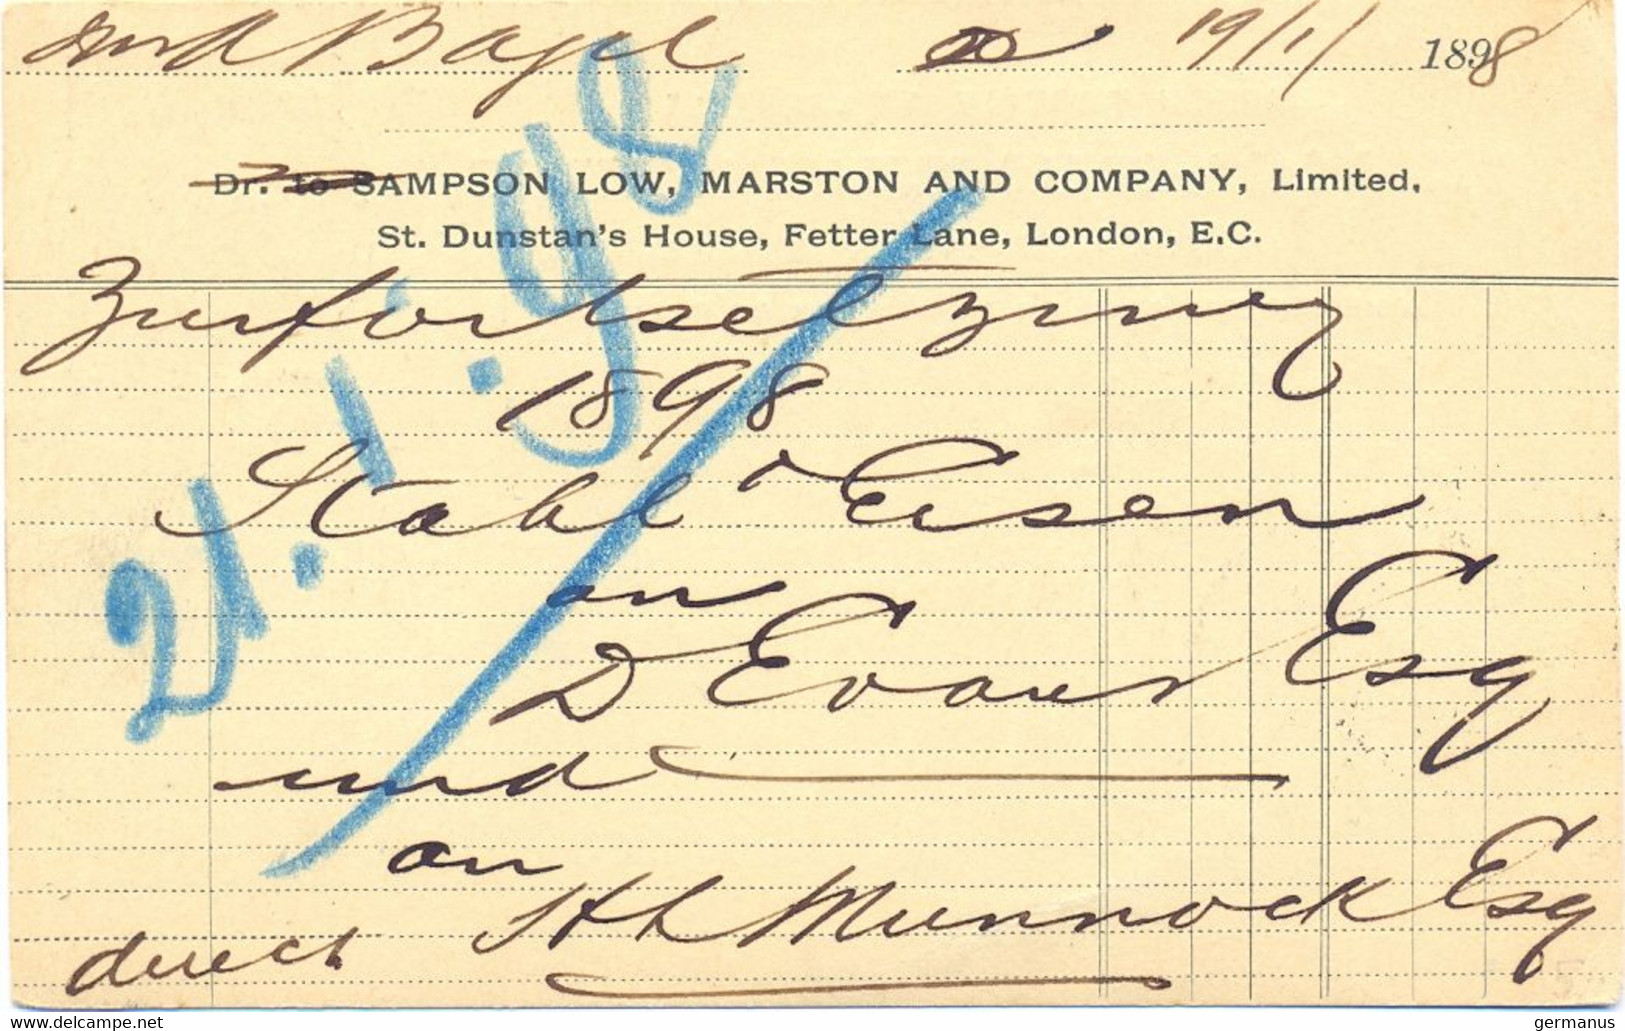 Bagel 19/1/ 1898
Dr. to SAMPSON LOW, MARSTON AND COMPANY, Limited,
St. Dunstan's House, Fetter Lane, London, E.C.
21.1.98
Zur fortsetzung
1898
Stahl & Eisen
an
D Evans Esq
und
an
direct H L Munnock Esq
www.delcampe.net
germanus